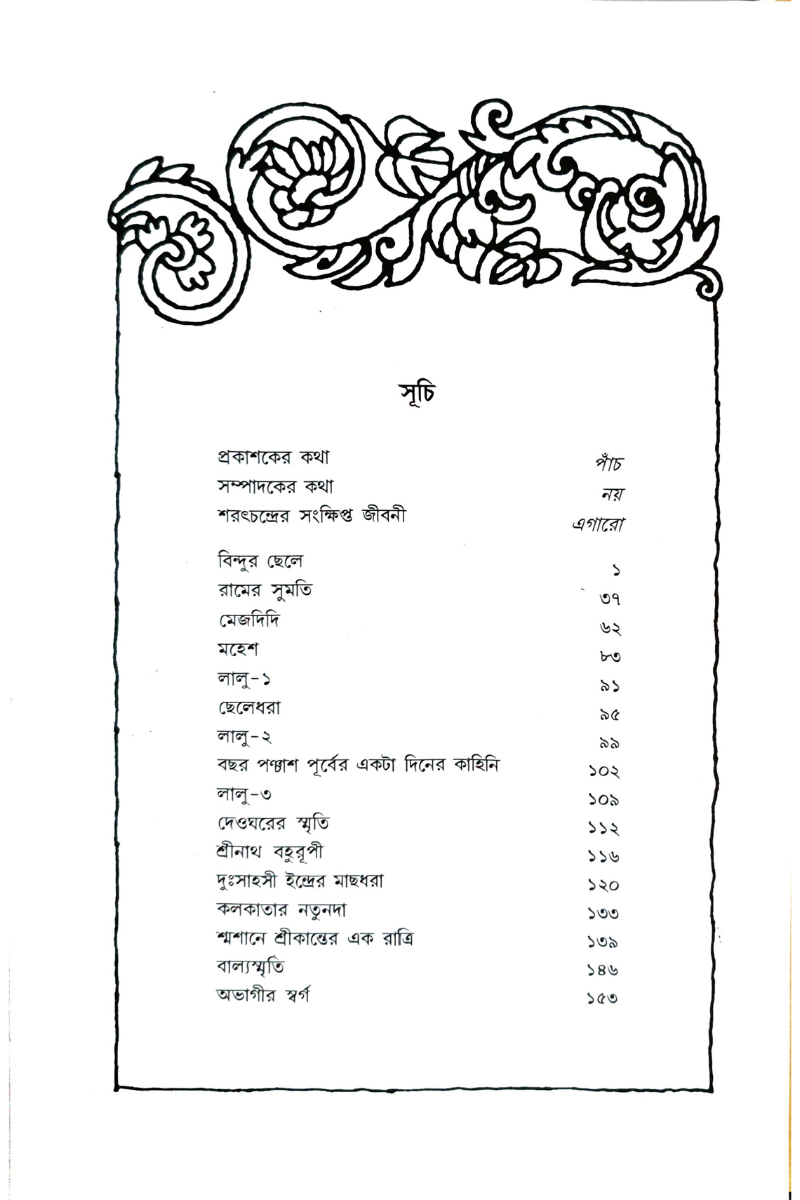 সূচি
প্রকাশকের কথা পাঁচ
সম্পাদকের কথা নয়
শরৎচন্দ্রের সংক্ষিপ্ত জীবনী এগারো
বিন্দুর ছেলে ১
রামের সুমতি ৩৭
মেজদিদি ৬২
মহেশ ৮৩
লালু-১ ৯১
ছেলেধরা ৯৫
লালু-২ ৯৯
বছর পঞ্চাশ পূর্বের একটা দিনের কাহিনি ১০২
লালু-৩ ১০৯
দেওঘরের স্মৃতি ১১২
শ্রীনাথ বহুরূপী ১১৬
দুঃসাহসী ইন্দ্রের মাছধরা ১২০
কলকাতার নতুনদা ১৩৩
শ্মশানে শ্রীকান্তের এক রাত্রি ১৩৯
বাল্যস্মৃতি ১৪৬
অভাগীর স্বর্গ ১৫৩